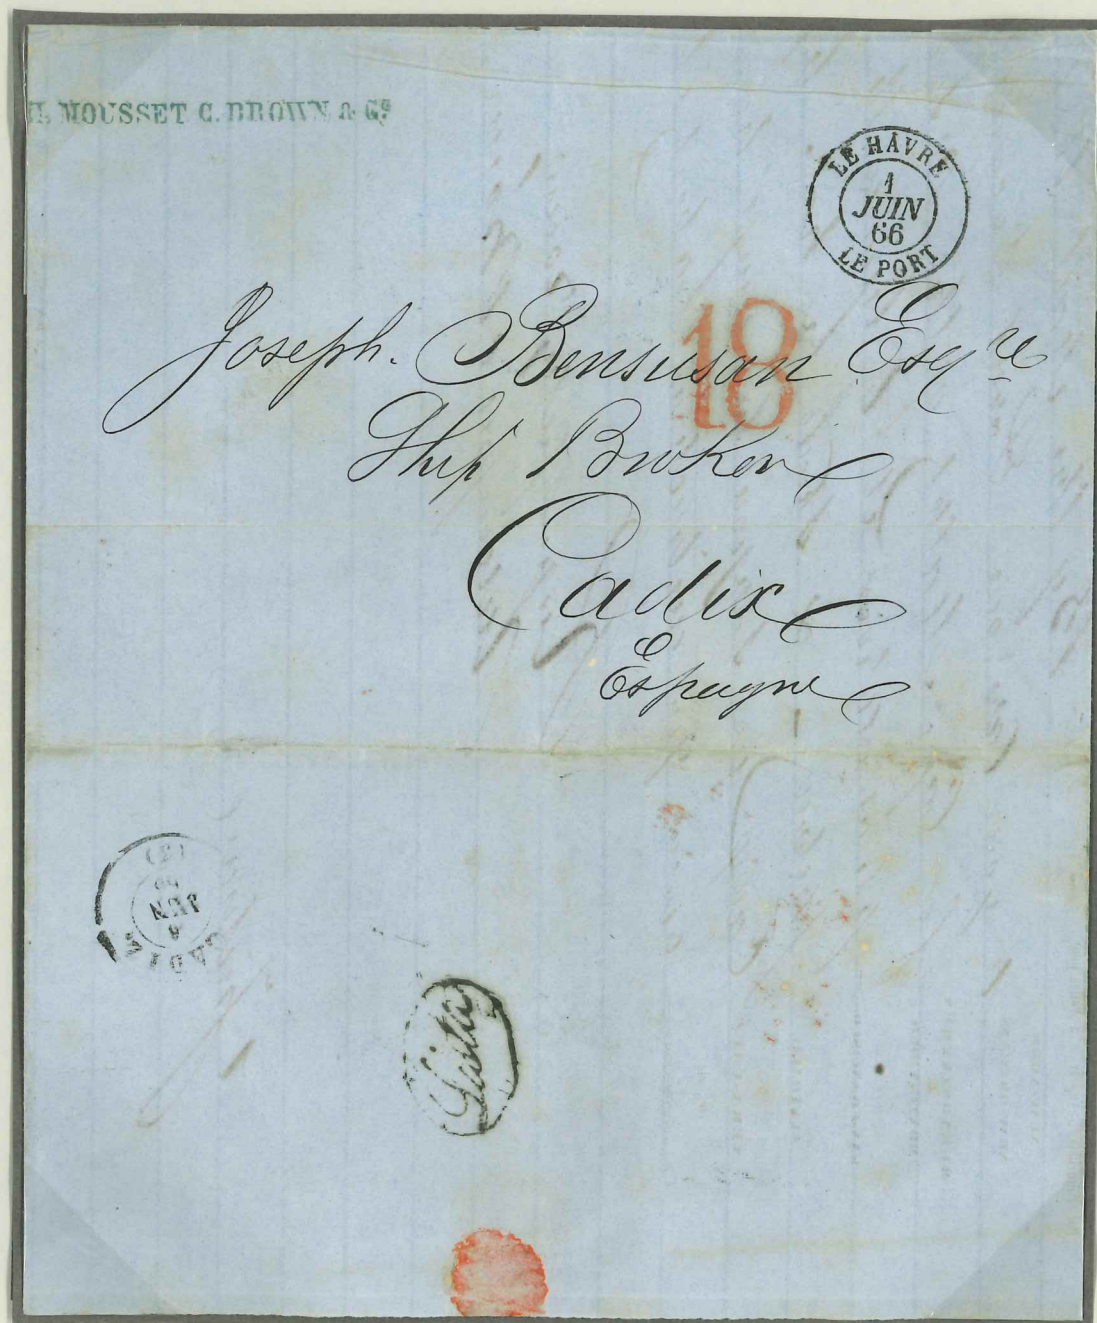 MOUSSET C. BROWN & Cº
LE HÂVRE
1
JUIN
66
LE PORT
18
Joseph. Bensusan Esqre
Ship Broker
Cadix
Espagne
(2)
JUN
CADIZ
Lista